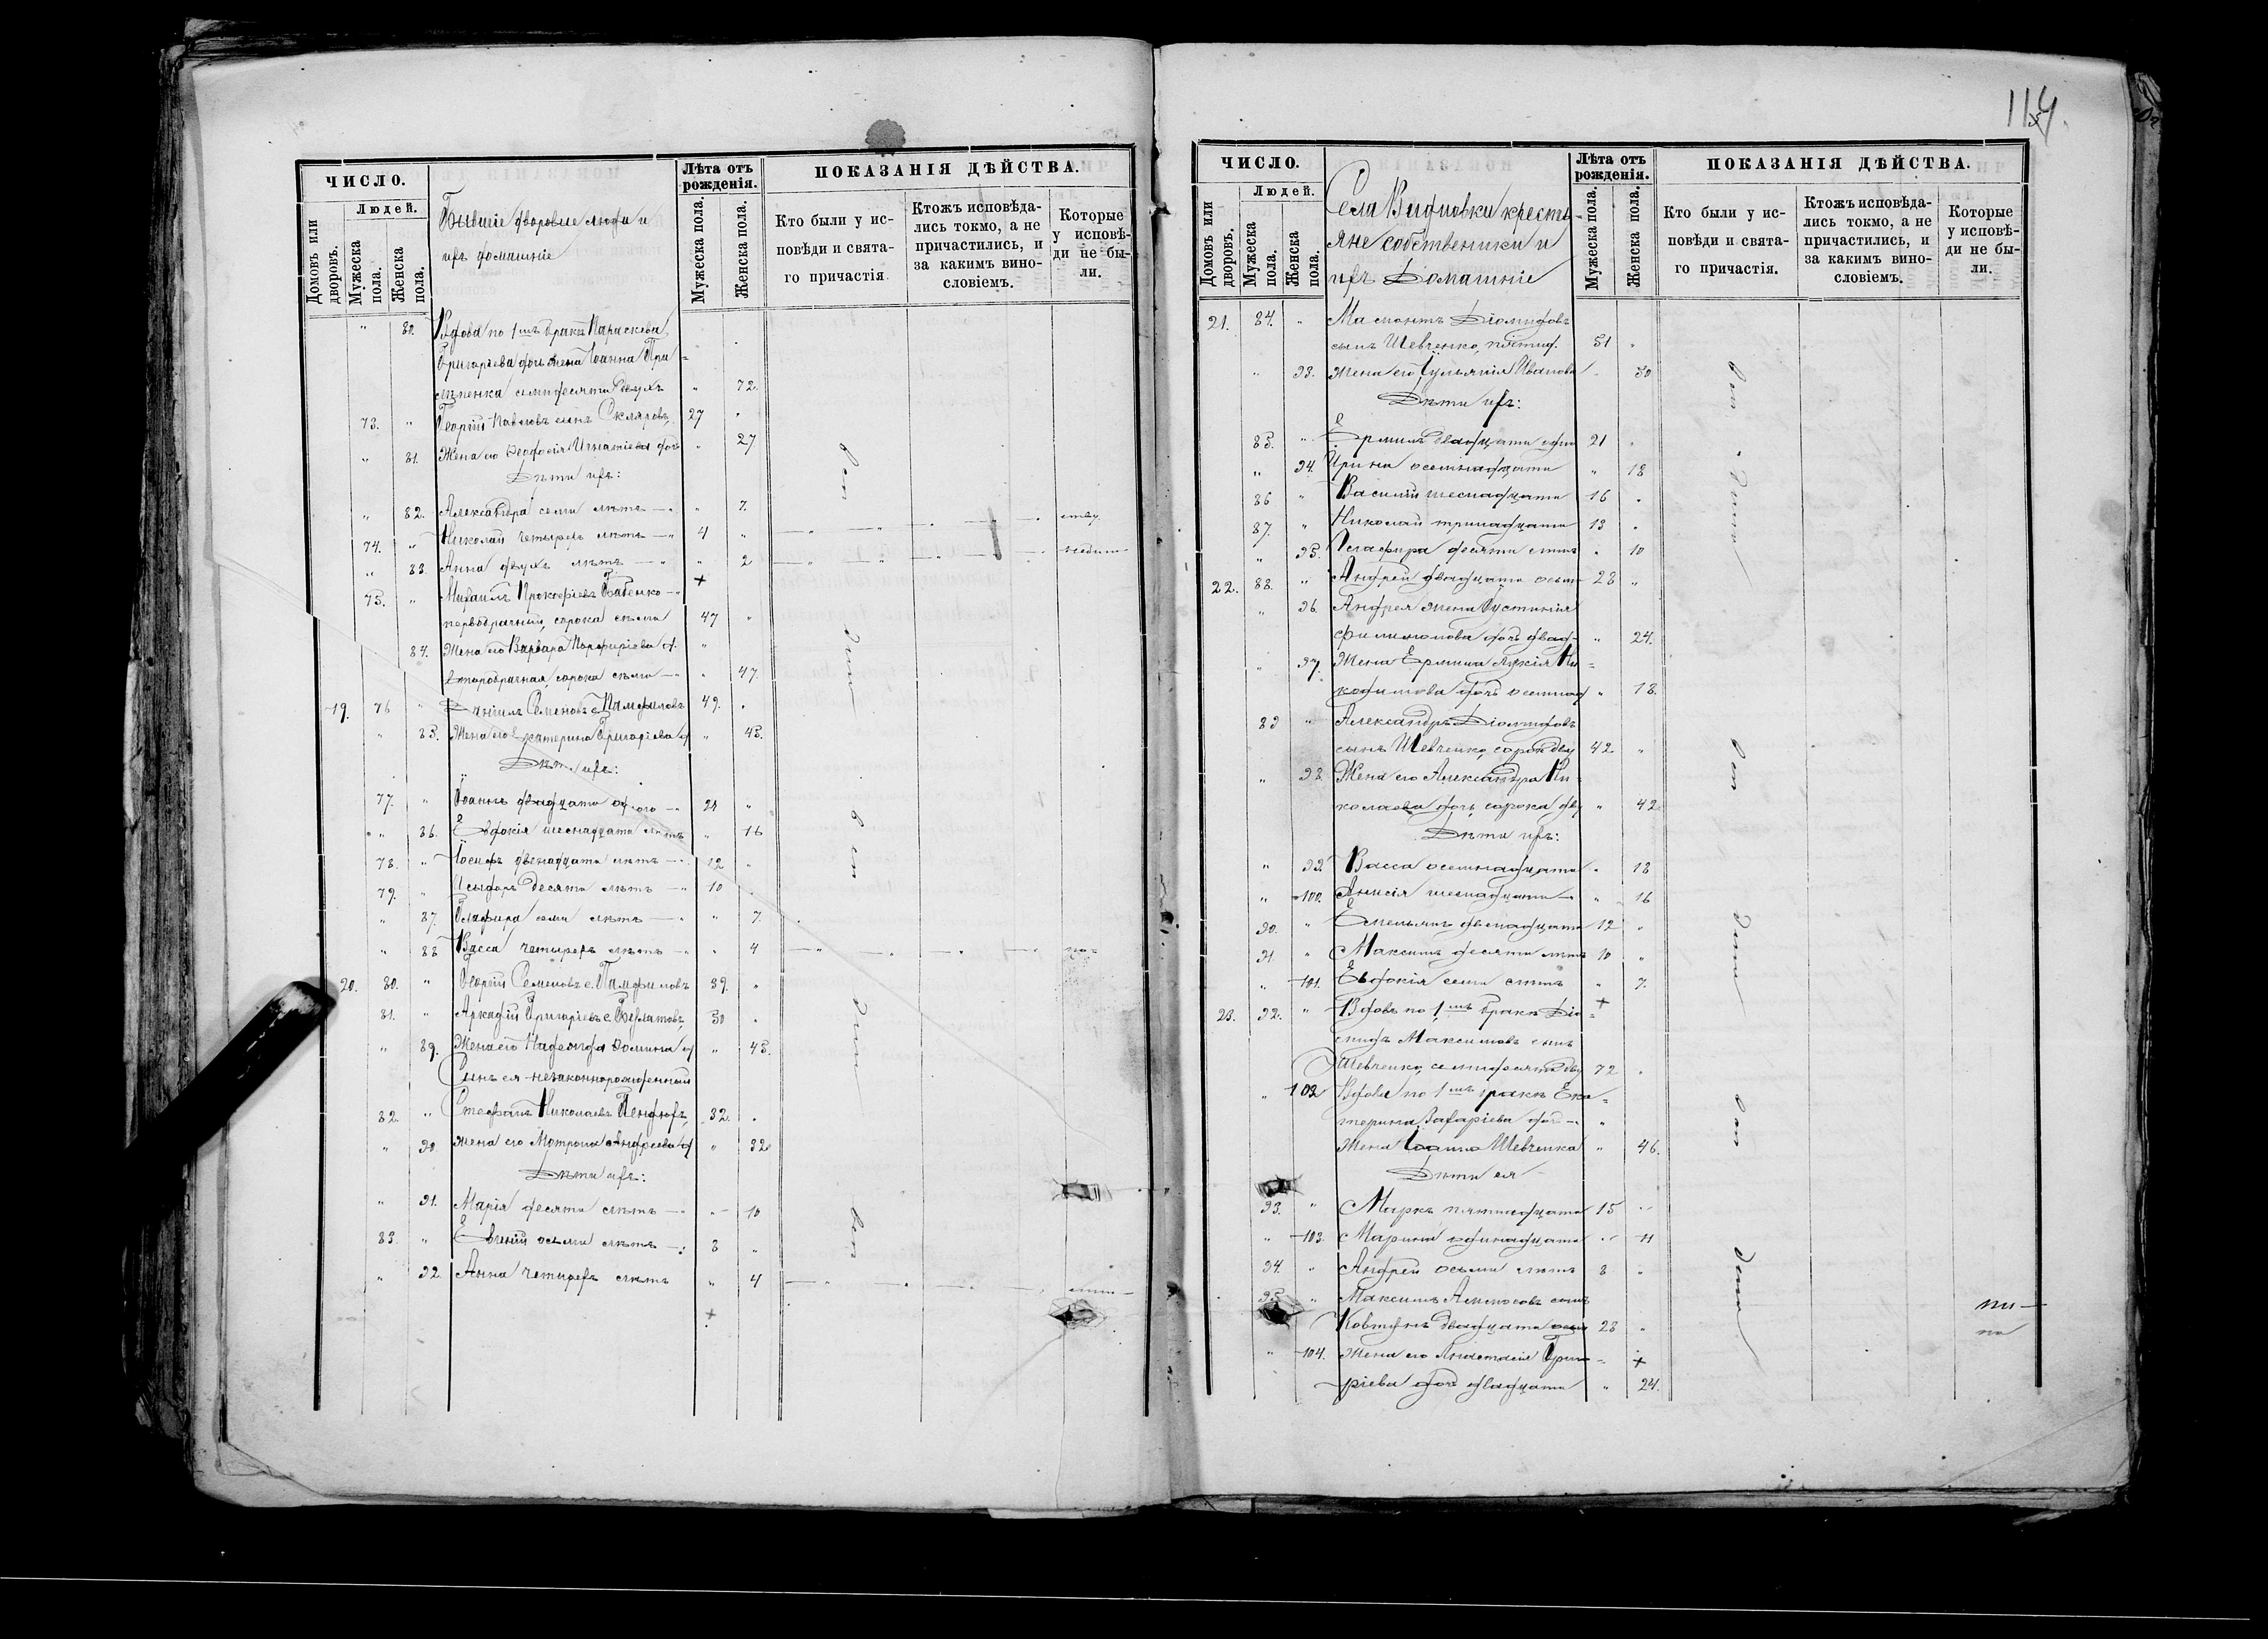 ЧИСЛО.
Людей.
Домовъ или дворовъ.
Мужеска пола.
Женска пола.
Бывшіе дворовые люди и
ихъ домашніе
Лѣта отъ рожденія.
Мужеска пола.
Женска пола.
ПОКАЗАНІЯ ДѢЙСТВА.
Кто были у ис-
повѣди и свята-
го причастія
Ктожъ исповѣда-
лись токмо, а не
причастились, и
за какимъ вино-
словіемъ.
Которые
у исповѣ-
ди не бы-
ли.
" 80. Вдова по 1мъ бракѣ Параскева
Григоріева дочь жена Іоанна При-
семидесяти двухъ " 72.
73. " Георгій Павловъ сынъ Скляровъ, 27 "
" 81. Жена его Ѳеодосія Игнатіева дочь " 27
Дѣти ихъ:
" 82. Александра семи лѣтъ " 7.
74. " Николай четырехъ лѣтъ 4 "
" 83. Анна двухъ лѣтъ " 2
75. " Михаилъ Прокофіевъ Бабенко +
первобрачный, сорока семи 47 "
84. Жена его Варвара Порфиріева д. "
второбрачная, сорока семи " 47.
19. 76 " Даніилъ Семеновъ с. Памфиловъ 49. "
" 85. Жена его Екатерина Григоріева д " 45.
Дѣти ихъ:
77. " Іоаннъ двадцати одного 21 "
" 86. Евдокія шеснадцати лѣтъ " 16
78. " Іосифъ двенадцати лѣтъ 12 "
79. " Исидоръ десяти лѣтъ 10
" 87. Глафира семи лѣтъ " 7.
" 88 Васса четырехъ лѣтъ " 4
20. 80. " Георгій Семеновъ с. Памфиловъ 39. "
81. " Аркадій Григоріевъ с. 50 "
" 89. Жена его Надежда Ѳомина д " 45.
Сынъ ея незаконнорожденный
82. " Стефанъ Николаевъ 32. "
" 90 Жена его Матрона Андреева д " 32
Дѣти ихъ:
" 91. Марія десяти лѣтъ " 10
83. " Евгеній осьми лѣтъ 8 "
" 92 Анна четырехъ лѣтъ " 4
+
114.
ЧИСЛО.
Людей.
Домовъ или дворовъ.
Мужеска пола.
Женска пола.
Села Видновки кресть-
яне собственики и
ихъ Домашніе
Лѣта отъ рожденія.
Мужеска пола.
Женска пола.
ПОКАЗАНІЯ ДѢЙСТВА.
Кто были у ис-
повѣди и свята-
го причастія.
Ктожъ исповѣда-
лись токмо, а не
причастились, и
за какимъ вино-
словіемъ.
Которые
у исповѣ-
ди не бы-
ли.
21. 84. " Мамонтъ Діомидовъ
сынъ Шевченко, 51 "
" 93. Жена его Іульянія Иванова " 50
Дѣти ихъ:
85. " Ермилъ двадцати одно 21 "
" 94. Ирина осемнадцати " 18
86 " Василій шеснадцати 16 "
87. " Николай тринадцати 13 "
" 95. Глафира десяти лѣтъ " 10
22. 88. " Андрей двадцати осьм 28 "
" 96. Андрея жена Іустинія
Филимонова дочь двад- " 24.
" 97. Жена Ермила Лукія Ни-
кодимова дочь осемнад " 18.
89 " Александръ Діомидовъ
сынъ Шевченко, сорок дву 42 "
" 98. Жена его Александра Ни-
колаева дочь сорока дву " 42
Дѣти ихъ:
" 99. Васса осемнадцати " 18
" 100. Анисія шеснадцати " 16
90. " Емельянъ двенадцати 12 "
91. " Максимъ десяти лѣтъ 10 "
" 101. Евдокія семи лѣтъ " 7.
23. 92. " Вдовъ по 1мъ бракѣ Діо- +
мидъ Максимовъ сынъ
Шевченко, семидесяти дву 72 "
" 102 Вдова по 1мъ бракѣ Ека-
терина Захаріева доч "
Жена Іоанна Шевченка " 46.
Дѣти ея
93. " Маркъ пятнадцати 15 "
" 103. Марина одинадцати " 11
94. " Андрей осьми лѣтъ 8 "
95 " Максимъ сынъ
Ковтунъ двадцати осьм 28 "
" 104. Жена его Анастасія Григо- +
ріева дочь двадцати " 24.